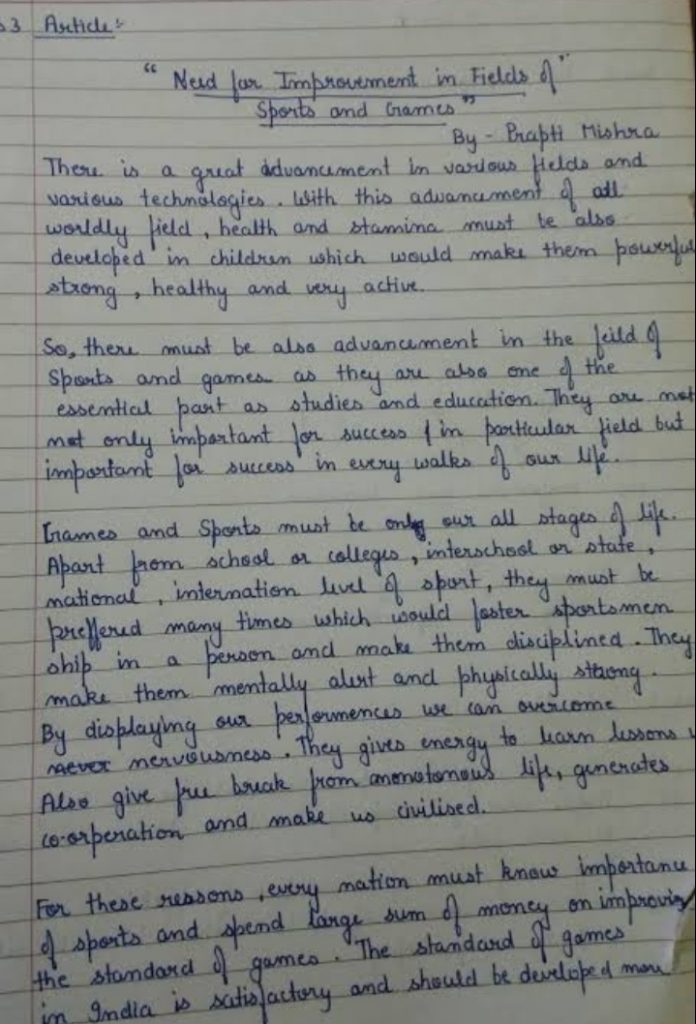 3 Article :-
" Need for Improvement in Fields of "
Sports and Games "
By - Prapti Mishra
There is a great advancement in various fields and
various technologies. With this advancement of all
worldly field, health and stamina must be also
developed in children which would make them powerful
strong, healthy and very active.
So, there must be also advancement in the feild of
Sports and games as they are also one of the
essential part as studies and education. They are not
not only important for success in particular field but
important for success in every walks of our life.
Games and Sports must be only our all stages of life.
Apart from school or colleges, interschool or state,
national, internation level of sport, they must be
preffered many times which would foster sportsmen
ship in a person and make them disciplined. They
make them mentally alert and physically strong.
By displaying our performences we can overcome
never nervousness. They gives energy to learn lessons
Also give free break from monotomous life, generates
co-orperation and make us civilised.
For these reasons, every nation must know importance
of sports and spend large sum of money on improving
the standard of games. The standard of games
in India is satisfactory and should be developed more